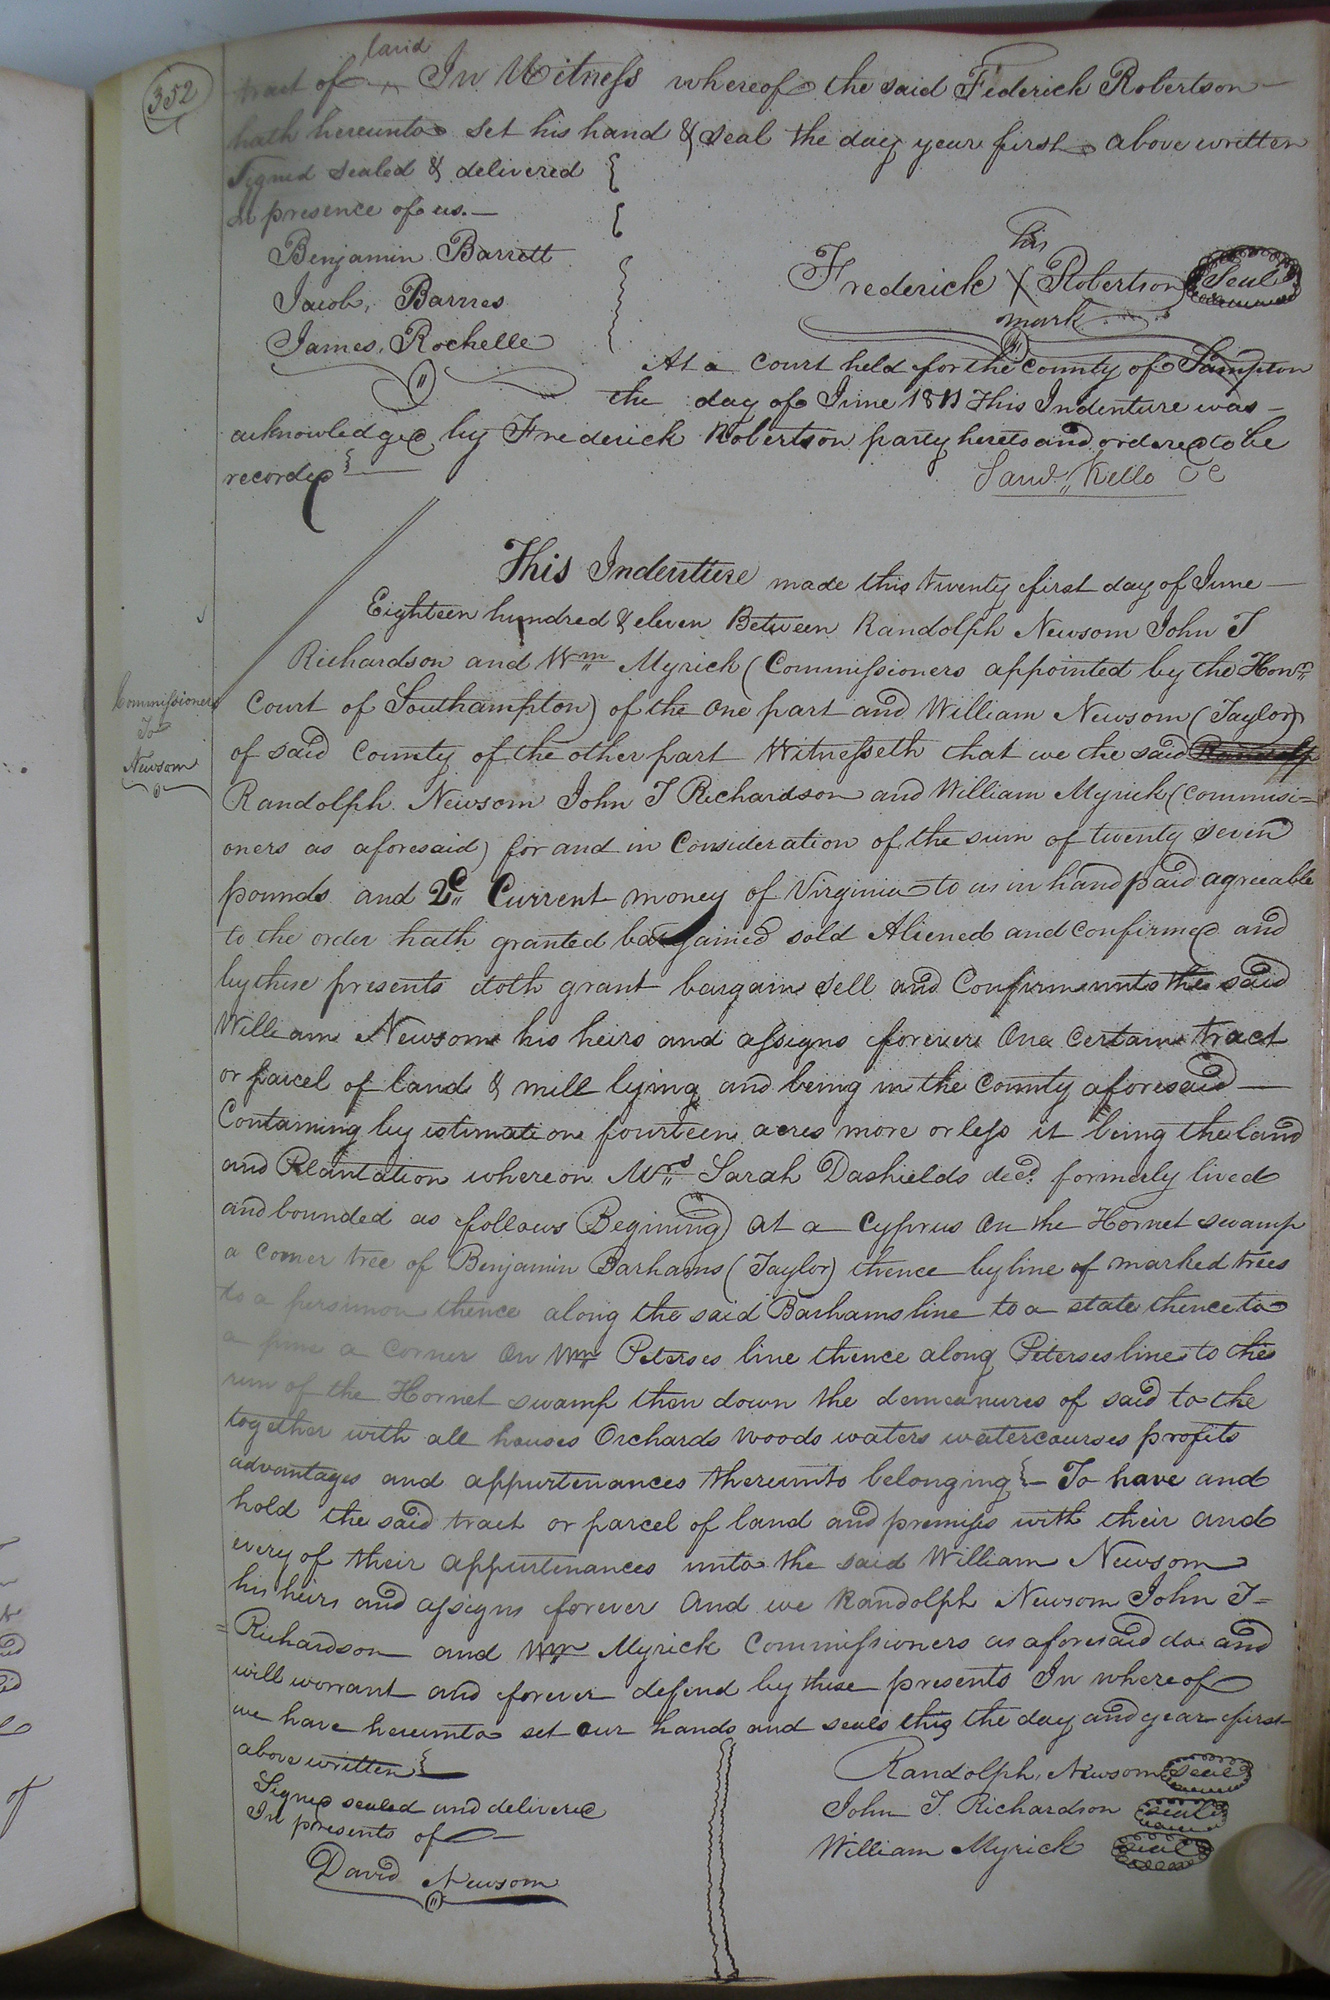 352
land
tract of ^ In Witness whereof the said Frederick Robertson
hath hereunto set his hand & seal the day year first above written
Signed sealed & delivered
in presence of us.
Benjamin Barrett
Jacob, Barnes
James, Rochelle
his
Frederick X Robertson Seal
mark
At a court held for the County of Sampton
the day of June 1811 This Indenture was
acknowledged by Frederick Robertson party hereto and ordered to be
recorded
Saml. Kello CC
This Indenture made this twenty first day of June
Eighteen hundred & eleven Between Randolph Newsom John T
Richardson and Wm Myrick (Commissioners appointed by the Honr.
Court of Southampton) of the One part and William Newsom (Taylor)
Commissioners
To
Newsom
of said County of the other part Witnesseth that we the said Randolp
Randolph Newsom John T Richardson and William Myrick (Commissi=
oners as aforesaid) for and in Consideration of the sum of twenty seven
pounds and 2c Current money of Virginia to us in hand paid agreeable
to the order hath granted bargained sold Aliened and confirmed and
by these presents doth grant bargain sell and Confirm unto the said
William Newsom his heirs and assigns forever One Certain tract
or parcel of land & mill lying and being in the County aforesaid
Containing by estimation fourteen acres more or less it being the land
and Plantation whereon Mrs Sarah Dashields decd. formerly lived
and bounded as follows (Begining) at a Cyprus On the Hornet swamp
a corner tree of Benjamin Barhams (Taylor) thence by line of marked trees
to a persimon thence along the said Barhams line to a state thence to
a pine a Corner On Wm Peterses line thence along Peterses line to the
run of the Hornet swamp then down the demeanures of said to the
together with all houses Orchards woods waters watercourses profits
advantages and appurtenances thereunto belonging To have and
hold the said tract or parcel of land and premises with their and
every of their appurtenances unto the said William Newsom
his heirs and assigns forever And we Randolph Newsom John T=
=Richardson and Wm Myrick Commissioners as aforesaid do and
will worrant and forever defend by these presents In whereof
we have hereunto set our hands and seals this the day and year first
above written
Signed sealed and delivered
In presents of
David Newsom
Randolph, Newsom seal
John T. Richardson seal
William Myrick seal